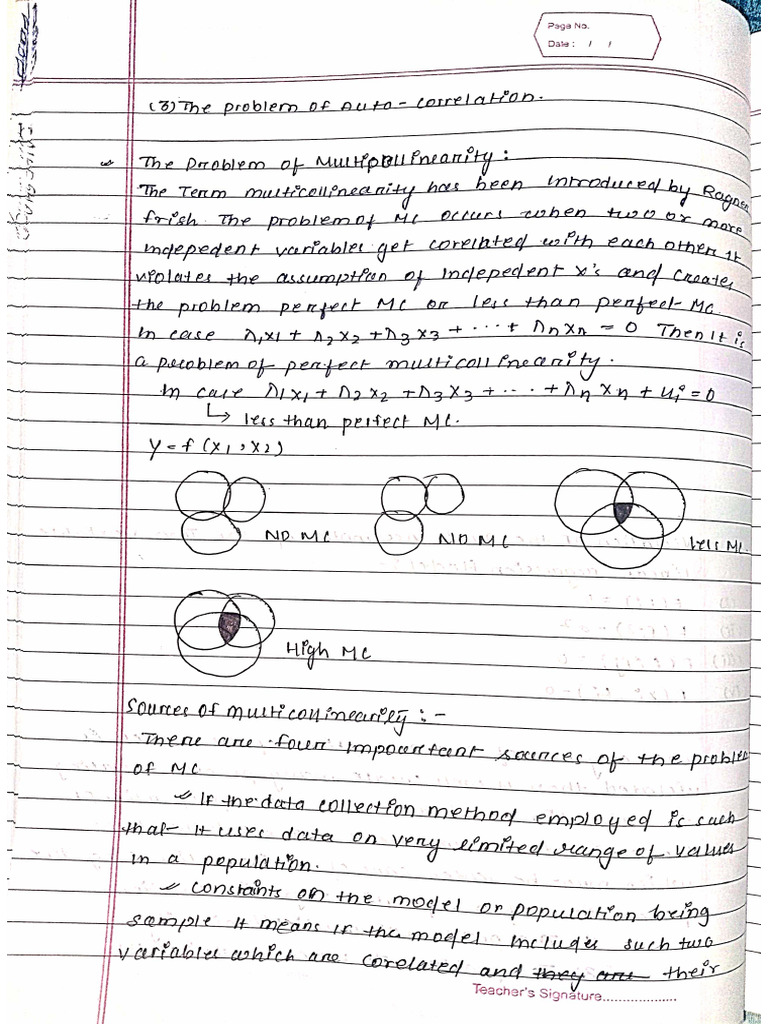 Page No.
Date : / /
(3) The problem of Auto-correlation.
The Problem of Multicollinearity :
The Term multicollinearity has been introduced by Ragner
frish. The problem of MC occurs when two or more
indepedent variables get corelated with each other It
violates the assumption of Indepedent x's and creates
the problem perfect MC or less than perfect MC.
In case λ1x1 + λ2x2 + λ3x3 + ... + λnxn = 0 Then It is
a problem of perfect multicollinearity.
In case λ1x1 + λ2x2 + λ3x3 + ... + λnxn + ui = 0
↳ less than perfect MC.
Y = f (x1, x2)
NO MC NO MC Less MC.
High MC
Sources of multicollinearity : -
There are four impourtant sources of the problem
of MC
If the data collection method employed is such
that It uses data on very limited range of values
in a population.
constaints on the model or population being
sample It means if the model includes such two
variables which are corelated and they are their
Teacher's Signature...................